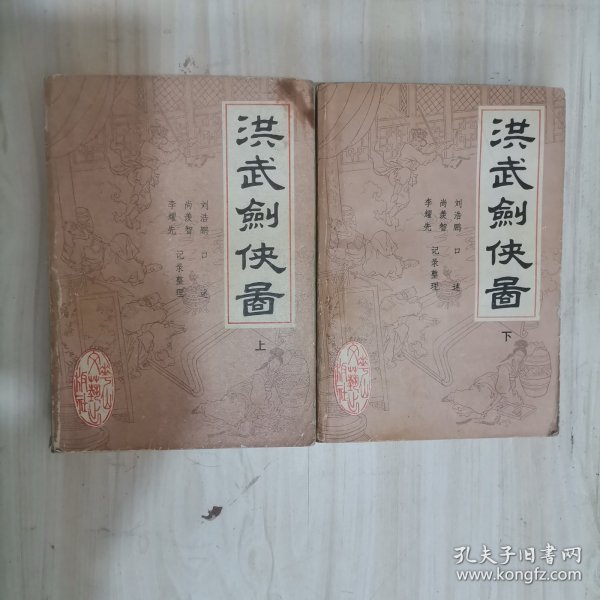 洪武劍侠圖
刘浩鹏 口述
尚羡智
李耀先 记录整理
上
洪武劍侠圖
刘浩鹏 口述
尚羡智
李耀先 记录整理
下
孔夫子旧书网
www.kongfz.com